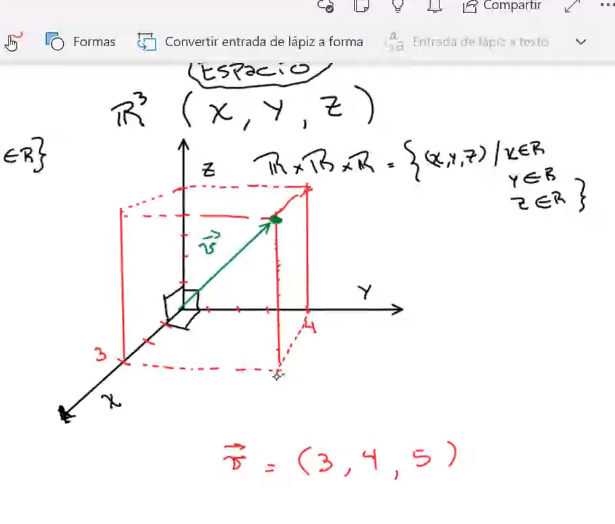 Compartir
Formas Convertir entrada de lápiz a forma Entrada de lápiz a texto
ESPACIO
ℝ³ (X, Y, Z)
∈R}
ℝ×ℝ×ℝ = {(X,Y,Z) / X∈R
Y∈R
Z∈R}
Z
v⃗
Y
4
3
X
v⃗ = (3, 4, 5)